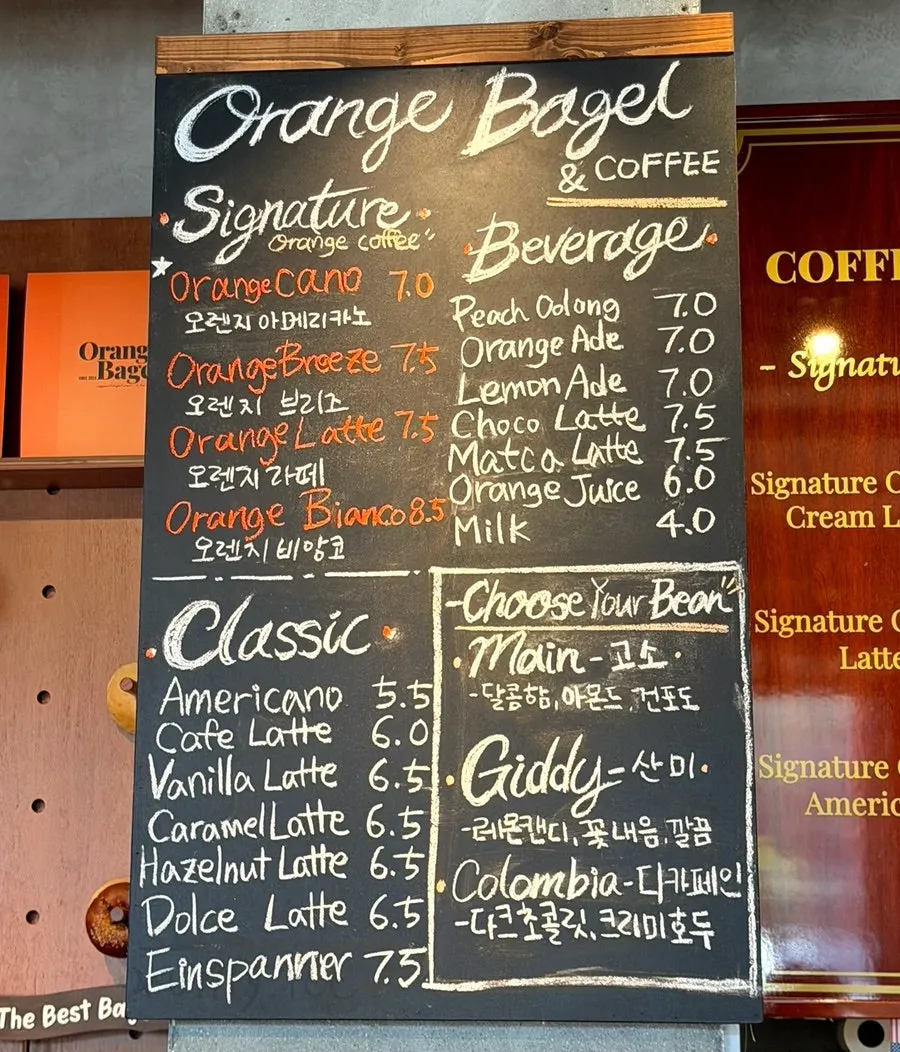 Orange Bagel
& COFFEE
Signature
Orange coffee"
OrangeCano 7.0
오렌지 아메리카노
OrangeBreeze 7.5
오렌지 브리즈
Orange Latte 7.5
오렌지 라떼
Orange Bianco 8.5
오렌지 비앙코
Beverage
Peach Oolong 7.0
Orange Ade 7.0
Lemon Ade 7.0
Choco Latte 7.5
Matca Latte 7.5
Orange Juice 6.0
Milk 4.0
Classic
Americano 5.5
Cafe Latte 6.0
Vanilla Latte 6.5
Caramel Latte 6.5
Hazelnut Latte 6.5
Dolce Latte 6.5
Einspanner 7.5
-Choose Your Bean"
Main - 고소
-달콤함, 아몬드, 건포도
Giddy - 산미
-레몬캔디, 꽃내음, 깔끔
Colombia - 디카페인
-다크초콜릿, 크리미호두
Orang
Bage
The Best Ba
COFF
- Signatu
Signature C
Cream L
Signature C
Latte
Signature
Americ